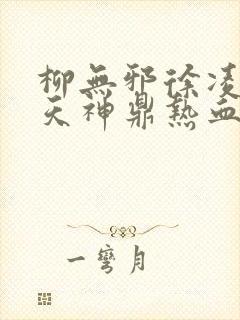 柳無邪徐凌
天神鼎熱血
一彎月